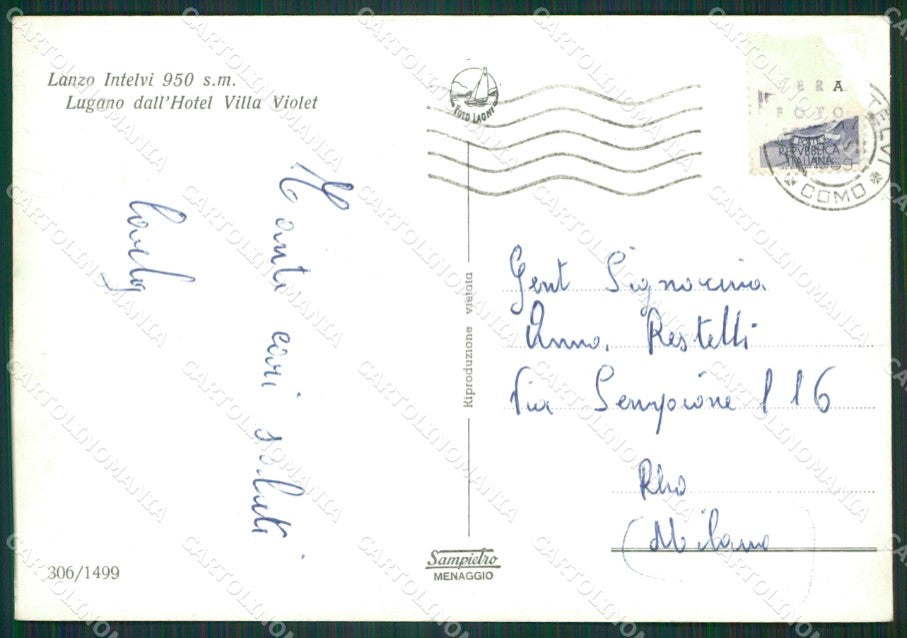 Lanzo Intelvi 950 s.m.
Lugano dall'Hotel Villa Violet
FOTO LAGHI
VERA
FOTO
POSTE
REPVBBLICA
ITALIANA
COMO
Tanti cari saluti
Riproduzione vietata
Gent Signorina
Anna Restelli
Via Sempione 116
Rho
(Milano
306/1499
Sampietro
MENAGGIO
CARTOLINOMANIA